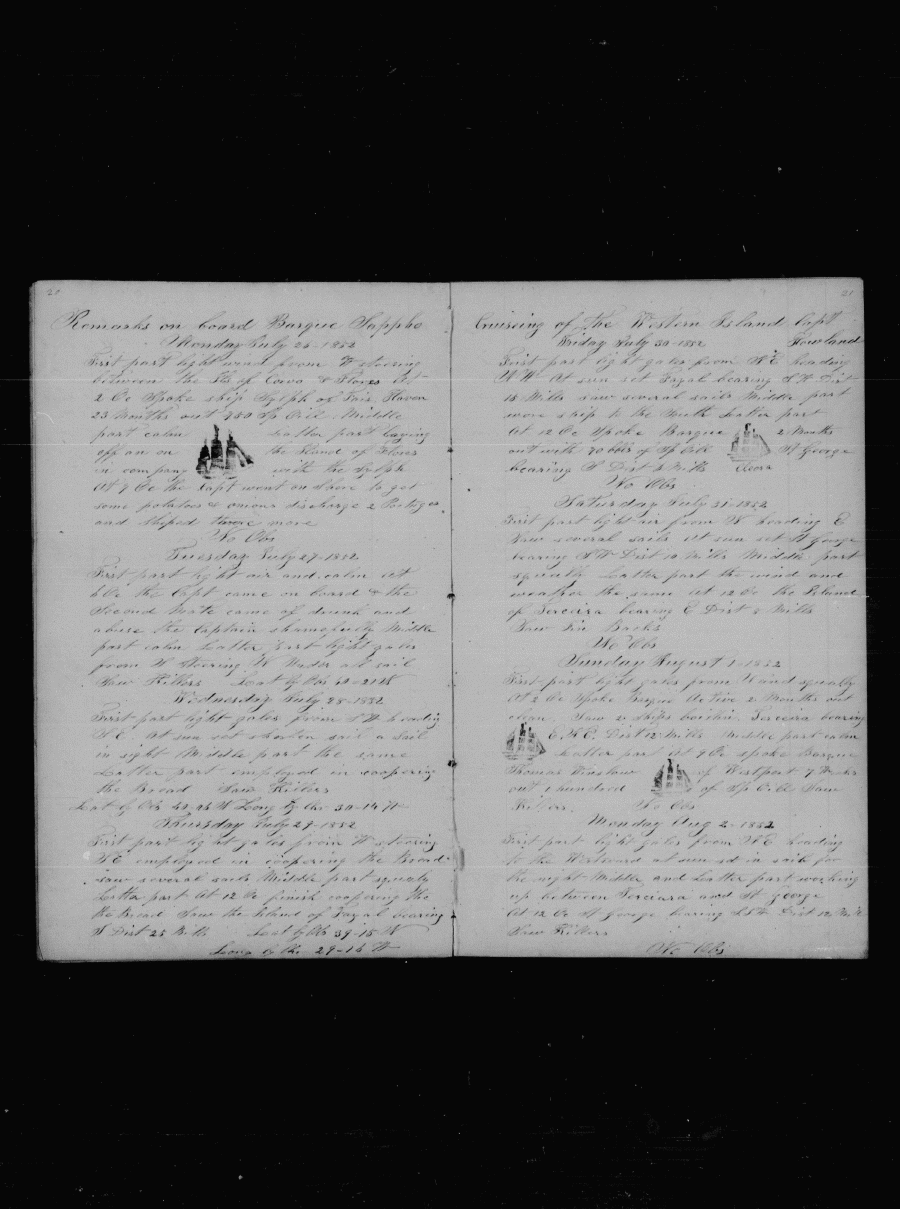 Remarks on board Barque Sappho
Monday July 26-1852
First part light wind from W steering
between the Is of Corvo & Flores At
2 Oc Spoke ship Sylph of Fair Haven
23 Months out 950 Sp Oil Middle
part calm Latter part laying
off an on the Island of Flores
in company with the Sylph
At 9 Oc the Capt went on shore to get
some potatoes & onions discharge 2
and shiped three more
No Obs
Tuesday July 27-1852
First part light air and calm At
6 Oc the Capt came on board & the
Second Mate came of drunk and
abuse the Captain shamefully Middle
part calm Latter part light gales
from steering under all sail
Saw Killers Lat by Obs
Wednesday July 28-1852
First part light gales from S W heading
N E At sun set shorten sail a Sail
in sight Middle part the same
Latter part employed in coopering
the Bread Saw Killers
Lat by Obs N Long by Chr 30-14 W
Thursday July 29-1852
First part light gales from W steering
N E employed in coopering the Bread
saw several sails Middle part squaly
Latter part At 12 Oc finish coopering the
the Bread Saw the Island of Fayal bearing
S Dist 25 Mills Lat by Obs 39-15 N
Long by Chr 29-16 W
21
Cruising of the Western Island Capt
Howland
Friday July 30-1852
First part light gales from N E heading
N W At sun set Fayal bearing S W Dist
15 Mills saw several sails Middle part
wore ship to the South Latter part
At 12 Oc Spoke Barque 2 Months
out with 70 bbls of Sp Oil St George
bearing S Dist Mills
No Obs
Saturday July 31-1852
First part light air from W heading E
Saw several sails At sun set St George
bearing S W Dist 10 Mills Middle part
squally Latter part the wind and
weather the same At 12 Oc the Island
of Terceira bearing E Dist Mills
Saw Fin Backs
No Obs
Sunday August 1-1852
First part light gales from W and squally
At 2 Oc Spoke Barque Active 2 Months out
clean Saw 2 ships Terceira bearing
E,N E, Dist 12 Mills Middle part calm
Latter part At 9 Oc spoke Barque
Thomas Winslow of Westport 9 Months
out 1 hundred of Sp Oil Saw
Killers. No Obs
Monday Aug 2-1852
First part light gales from N E heading
to the Westward at sun set in sail for
the night Middle and Latter part working
up between Terceira and St George
At 12 Oc St George bearing Dist 12 Mills
Saw Killers
No Obs